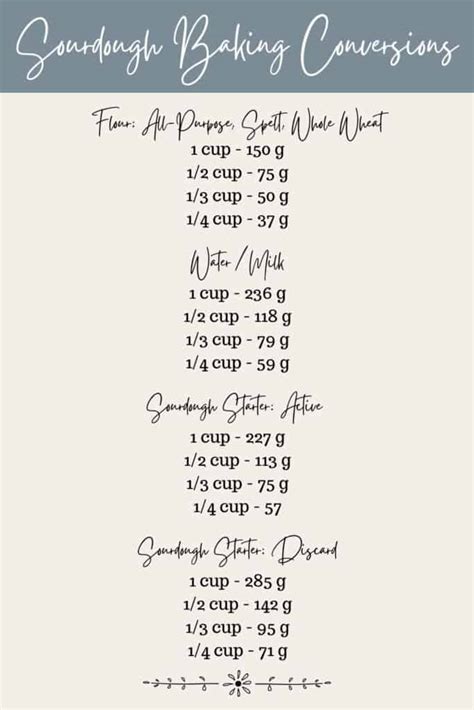 Sourdough Baking Conversions
Flour: All-Purpose, Spelt, Whole Wheat
1 cup - 150 g
1/2 cup - 75 g
1/3 cup - 50 g
1/4 cup - 37 g
Water/Milk
1 cup - 236 g
1/2 cup - 118 g
1/3 cup - 79 g
1/4 cup - 59 g
Sourdough Starter: Active
1 cup - 227 g
1/2 cup - 113 g
1/3 cup - 75 g
1/4 cup - 57
Sourdough Starter: Discard
1 cup - 285 g
1/2 cup - 142 g
1/3 cup - 95 g
1/4 cup - 71 g